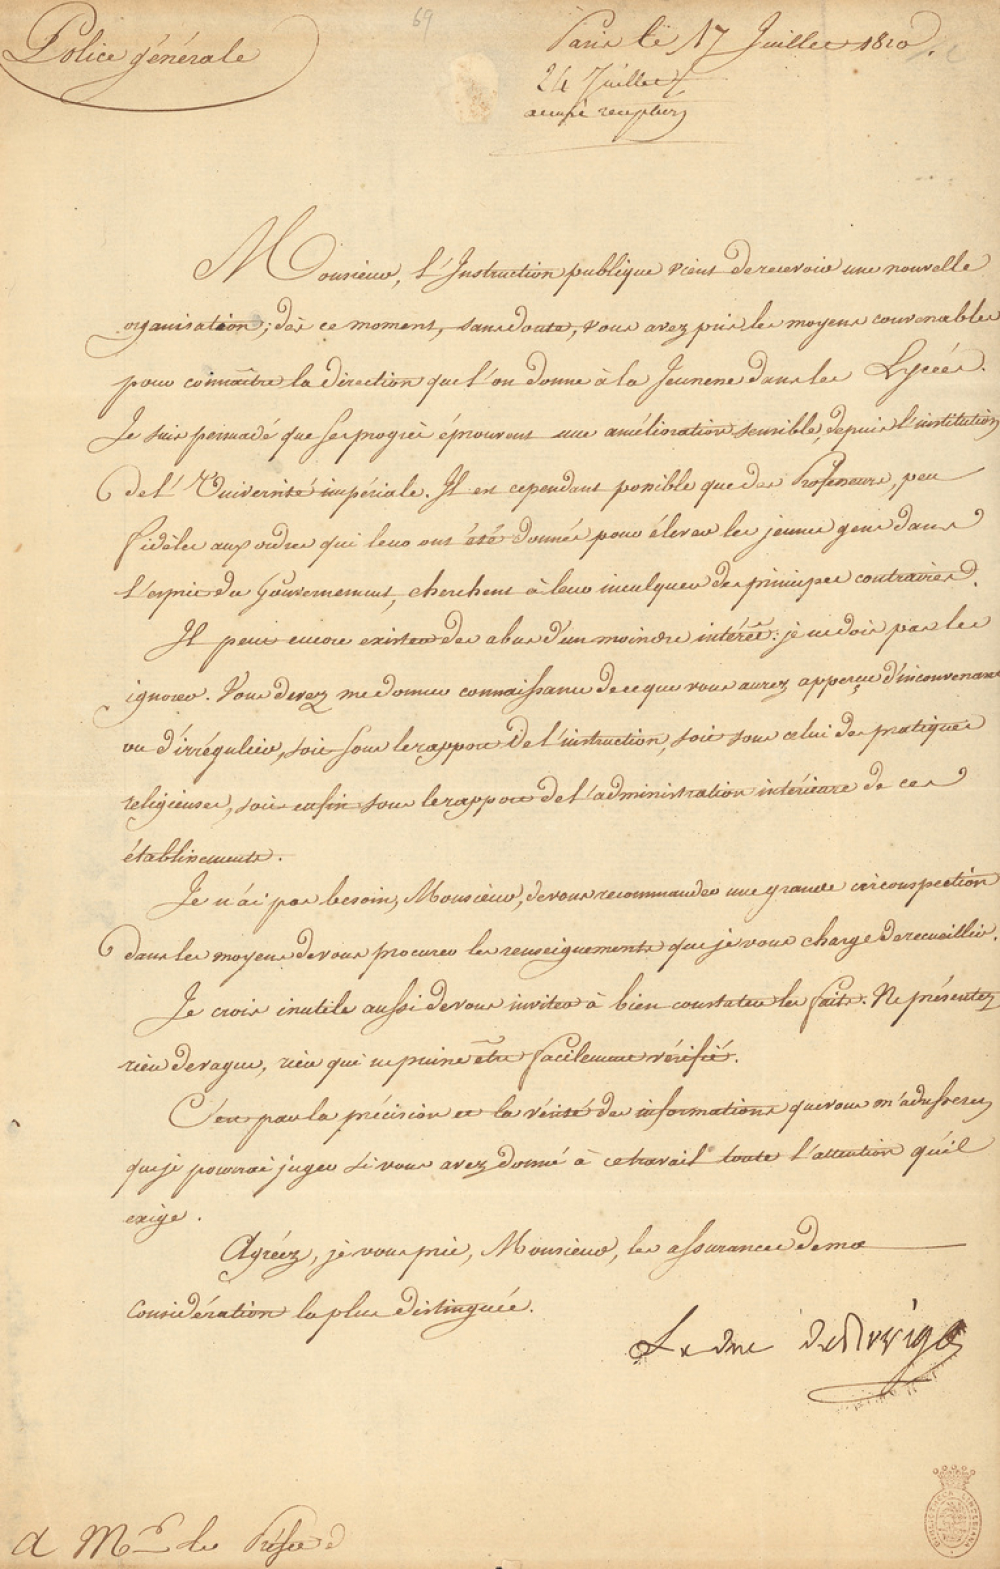 69
Police générale
Paris le 17 Juillet 1810.
24 Juillet
accusé reception
Monsieur, l'Instruction publique vient de recevoir une nouvelle
organisation; dès ce moment, sans doute, vous avez pris les moyens convenables
pour connaître la direction que l'on donne à la Jeunesse dans les Lycées.
Je suis persuadé que ses progrès éprouvent une amélioration sensible, depuis l'institution
de l'Université impériale. Il est cependant possible que des Professeurs, peu
fidèles aux ordres qui leur ont été donnés pour élever les jeunes gens dans
l'esprit du Gouvernement, cherchent à leur inculquer des principes contraires.
Il peut encore exister des abus d'un moindre intérêt: je ne dois pas les
ignorer. Vous devez me donner connaissance de ce que vous aurez apperçu d'inconvenant
ou d'irrégulier, soit sous le rapport de l'instruction, soit sous celui des pratiques
religieuses, soit enfin sous le rapport de l'administration intérieure de ces
établissements.
Je n'ai pas besoin, Monsieur, de vous recommander une grande circonspection
dans les moyens de vous procurer les renseignements que je vous charge de recueillir.
Je crois inutile aussi de vous inviter à bien constater les faits. Ne présentez
rien de vague, rien qui ne puisse être facilement vérifié.
C'est par la précision et la vérité des informations que vous m'adresserez
que je pourrai juger si vous avez donné à ce travail toute l'attention qu'il
exige.
Agréez, je vous prie, Monsieur, les assurances de ma
considération la plus distinguée.
Le duc de Rovigo
A Mr. le Préfet d
BIBLIOTHECA LINDESIANA